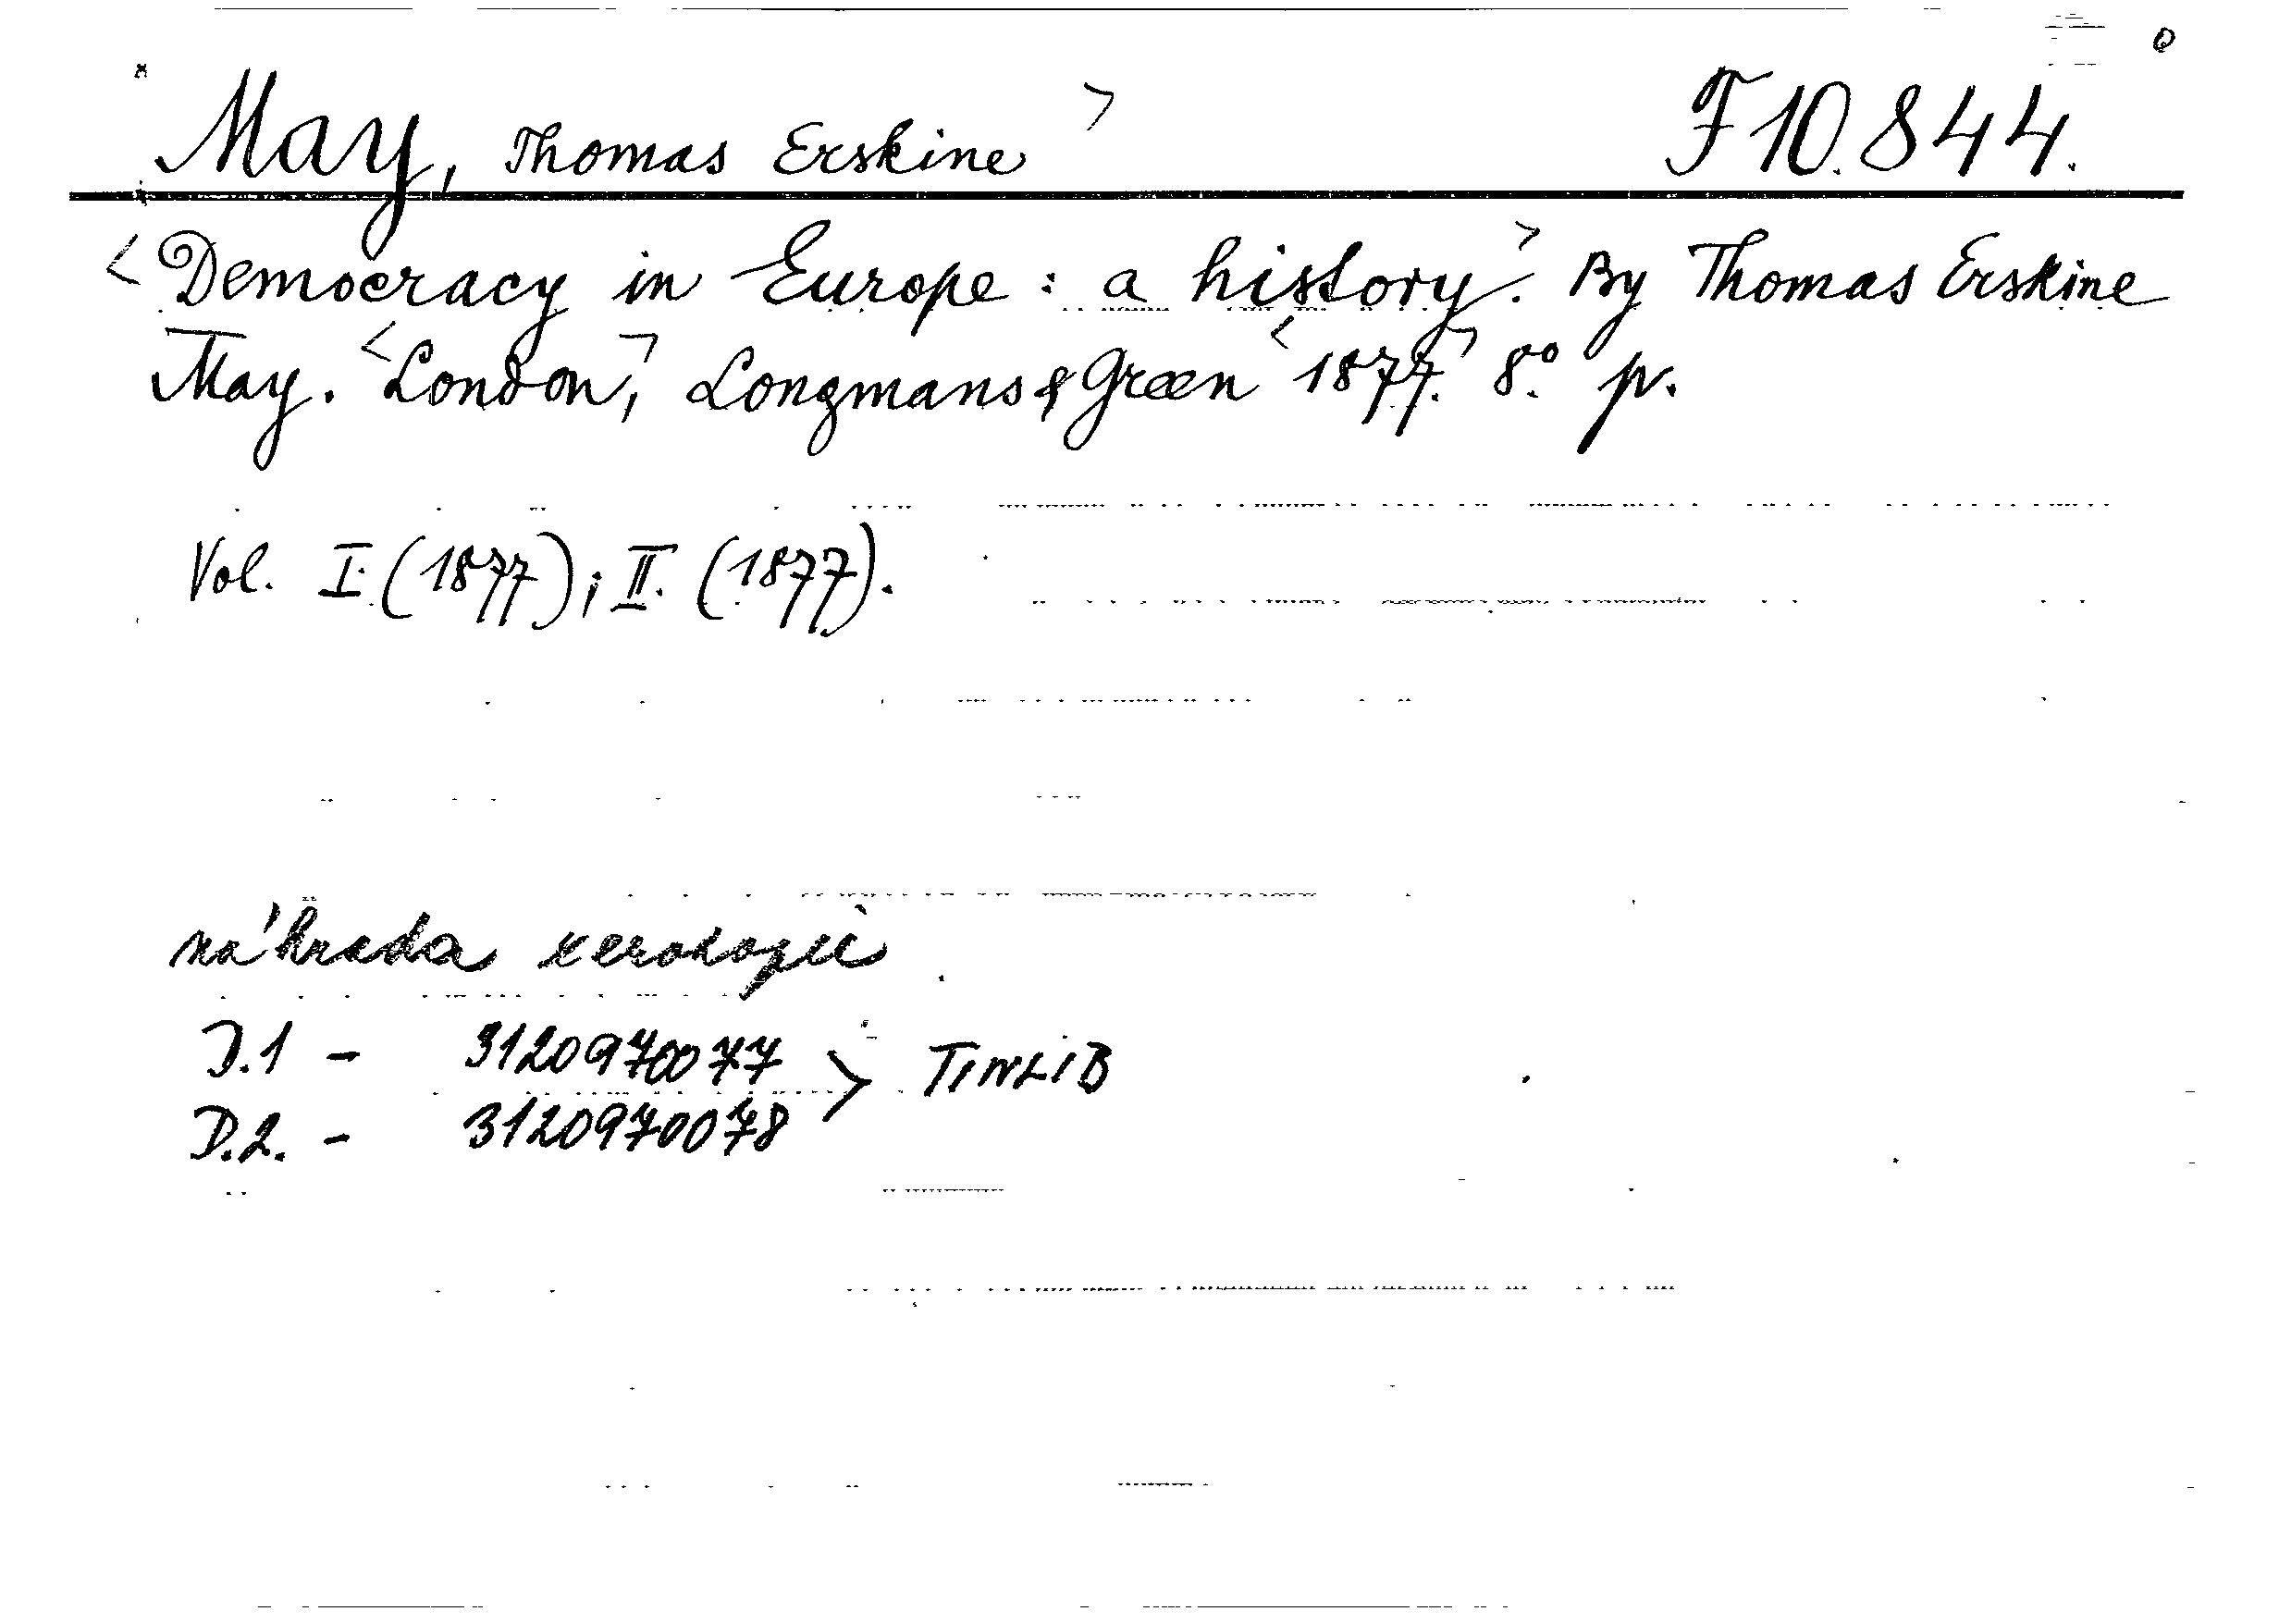 May, Thomas Erskine > F 10.844.
<Democracy in Europe : a history.> By Thomas Erskine
May. <London,> Longmans & Green <1877.> 8.° pv.
Vol. I. (1877); II. (1877).
náhrada xerokopií
D.1 - 3120970077 > TINLIB
D.2. - 3120970078